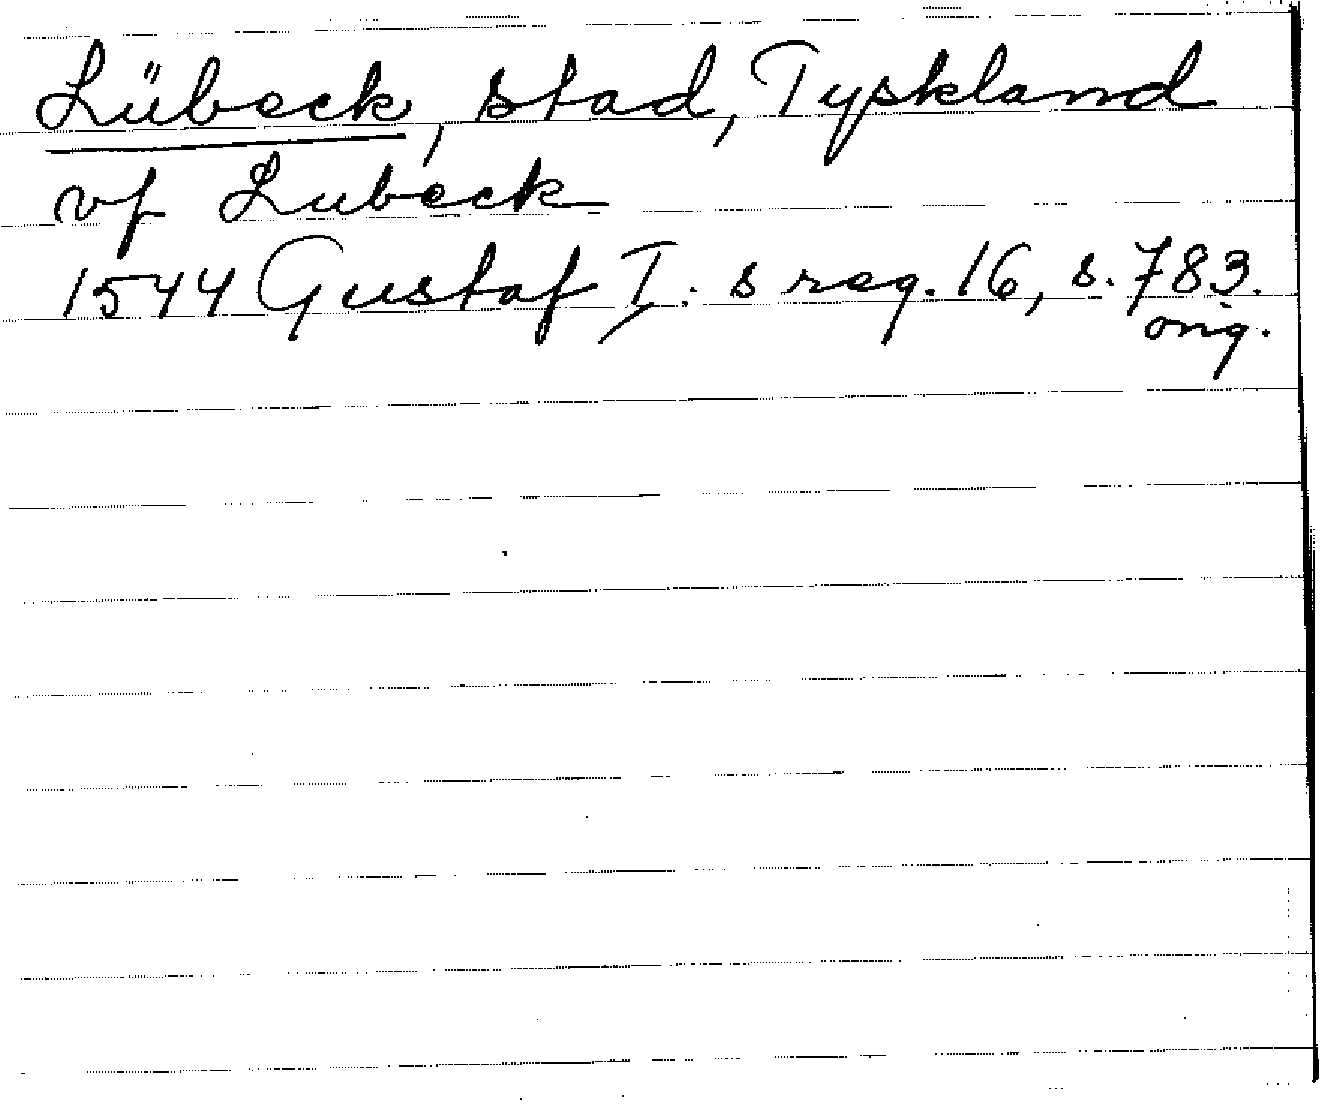 Lübeck, stad, Tyskland
vf Lubeck
1544 Gustaf I:s reg. 16, s. 783.
orig.